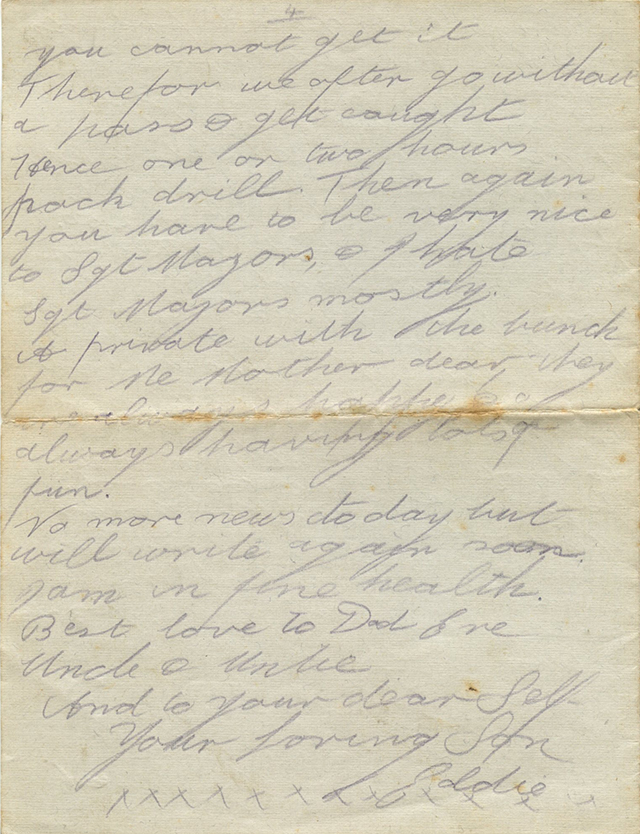 4
you cannot get it
Therefor we after go without
a pass & get caught
Hence one or two hours
pack drill. Then again
you have to be very nice
to Sgt Mayors, & I hate
Sgt Majors mostly.
A private with the bunch
for Me Mother dear they
are always happy &
always having lots of
fun.
No more news to day but
will write again soon.
I am in fine health.
Best love to Dad Eve
Uncle & Untie
And to your dear Self
Your loving Son
Eddie